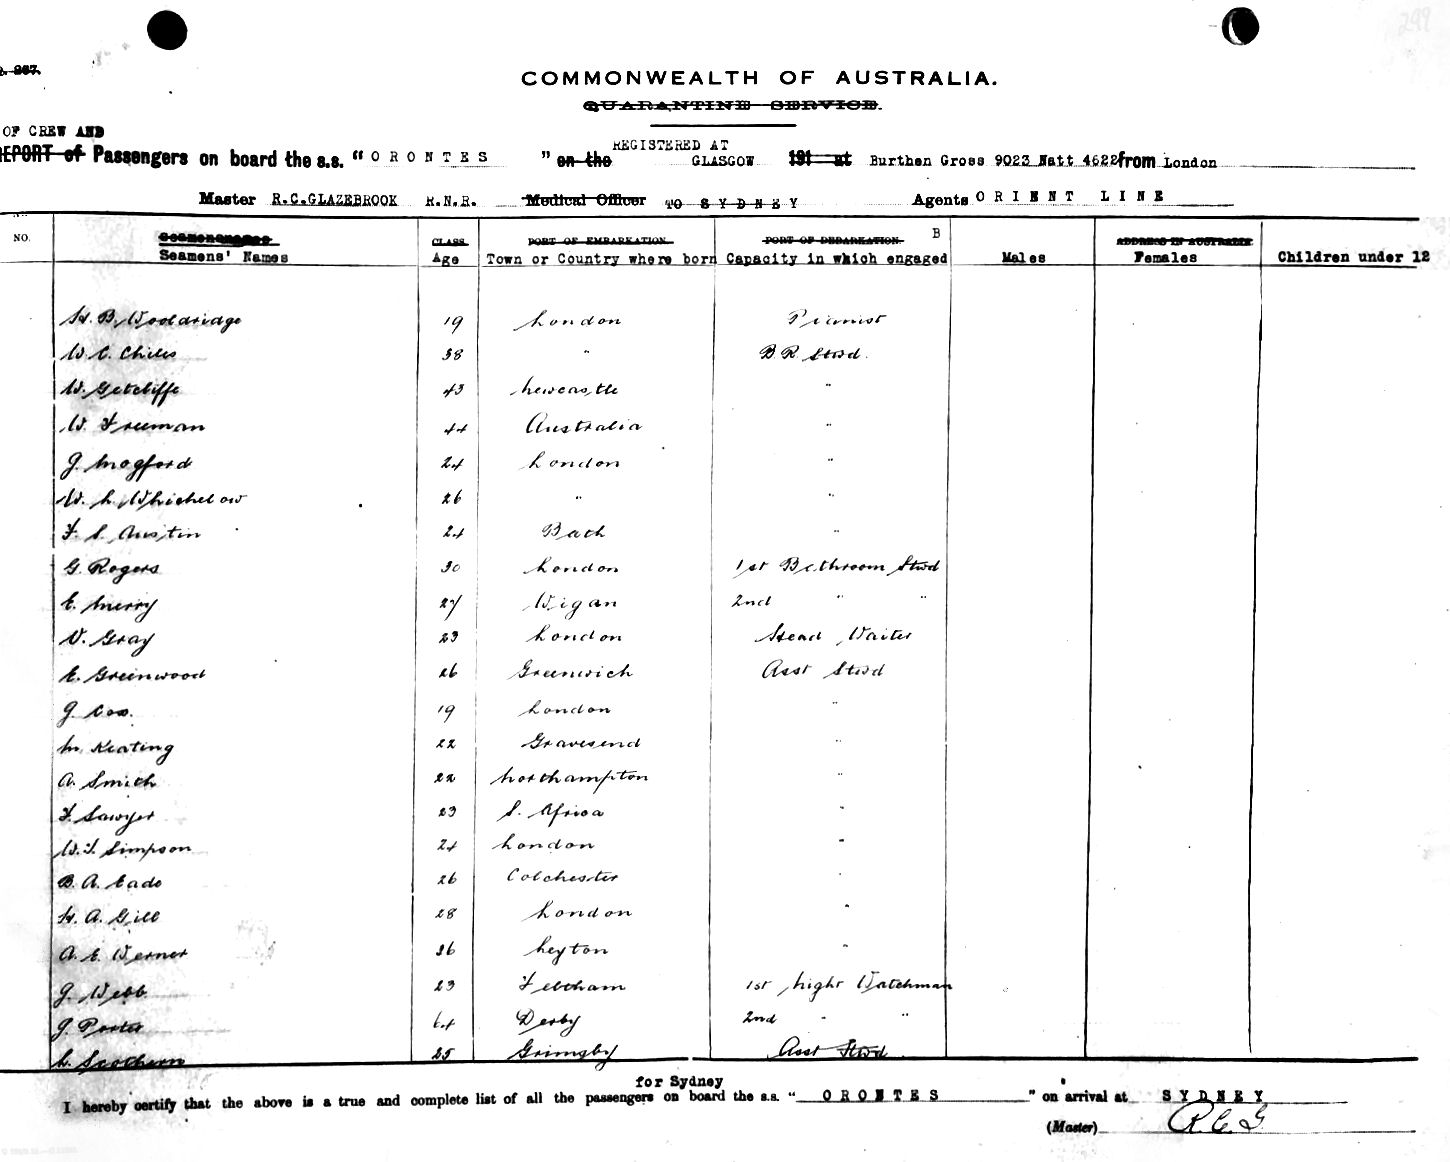 299
COMMONWEALTH OF AUSTRALIA.
QUARANTINE SERVICE.
OF CREW AND
REPORT of Passengers on board the s.s. "ORONTES" on the REGISTERED AT GLASGOW 191 at Burthen Gross 9023 Nett 4622 from London
Master R.C.GLAZEBROOK R.N.R. Medical Officer TO SYDNEY Agents ORIENT LINE
NO. Seamens' Names CLASS Age PORT OF EMBARKATION Town or Country where born PORT OF DEBARKATION B Capacity in which engaged Males ADDRESS IN AUSTRALIA Females Children under 12
H. B. Wooldridge 19 London Pianist
W. C. Chiles 38 " B.R. Stwd.
W. Getcliffe 43 Newcastle "
W. Freeman 44 Australia "
J. Mogford 24 London "
W. L. Whichelow 26 " "
F. S. Austin 24 Bath "
G. Rogers 30 London 1st Bathroom Stwd
E. Merry 27 Wigan 2nd " "
V. Gray 23 London Head Waiter
E. Greenwood 26 Greenwich Asst Stwd
J. Cox. 19 London "
M. Keating 22 Gravesend "
A. Smith 22 Northampton "
F. Sawyer 23 S. Africa "
W. T. Simpson 24 London "
B. A. Eade 26 Colchester "
H. A. Gill 28 London "
A. E. Werner 36 Leyton "
J. Webb 23 Feltham 1st Night Watchman
J. Porter 64 Derby 2nd " "
L. Scothern 25 Grimsby Asst Stwd
for Sydney
I hereby certify that the above is a true and complete list of all the passengers on board the s.s. "ORONTES" on arrival at SYDNEY
(Master) R.C.G.